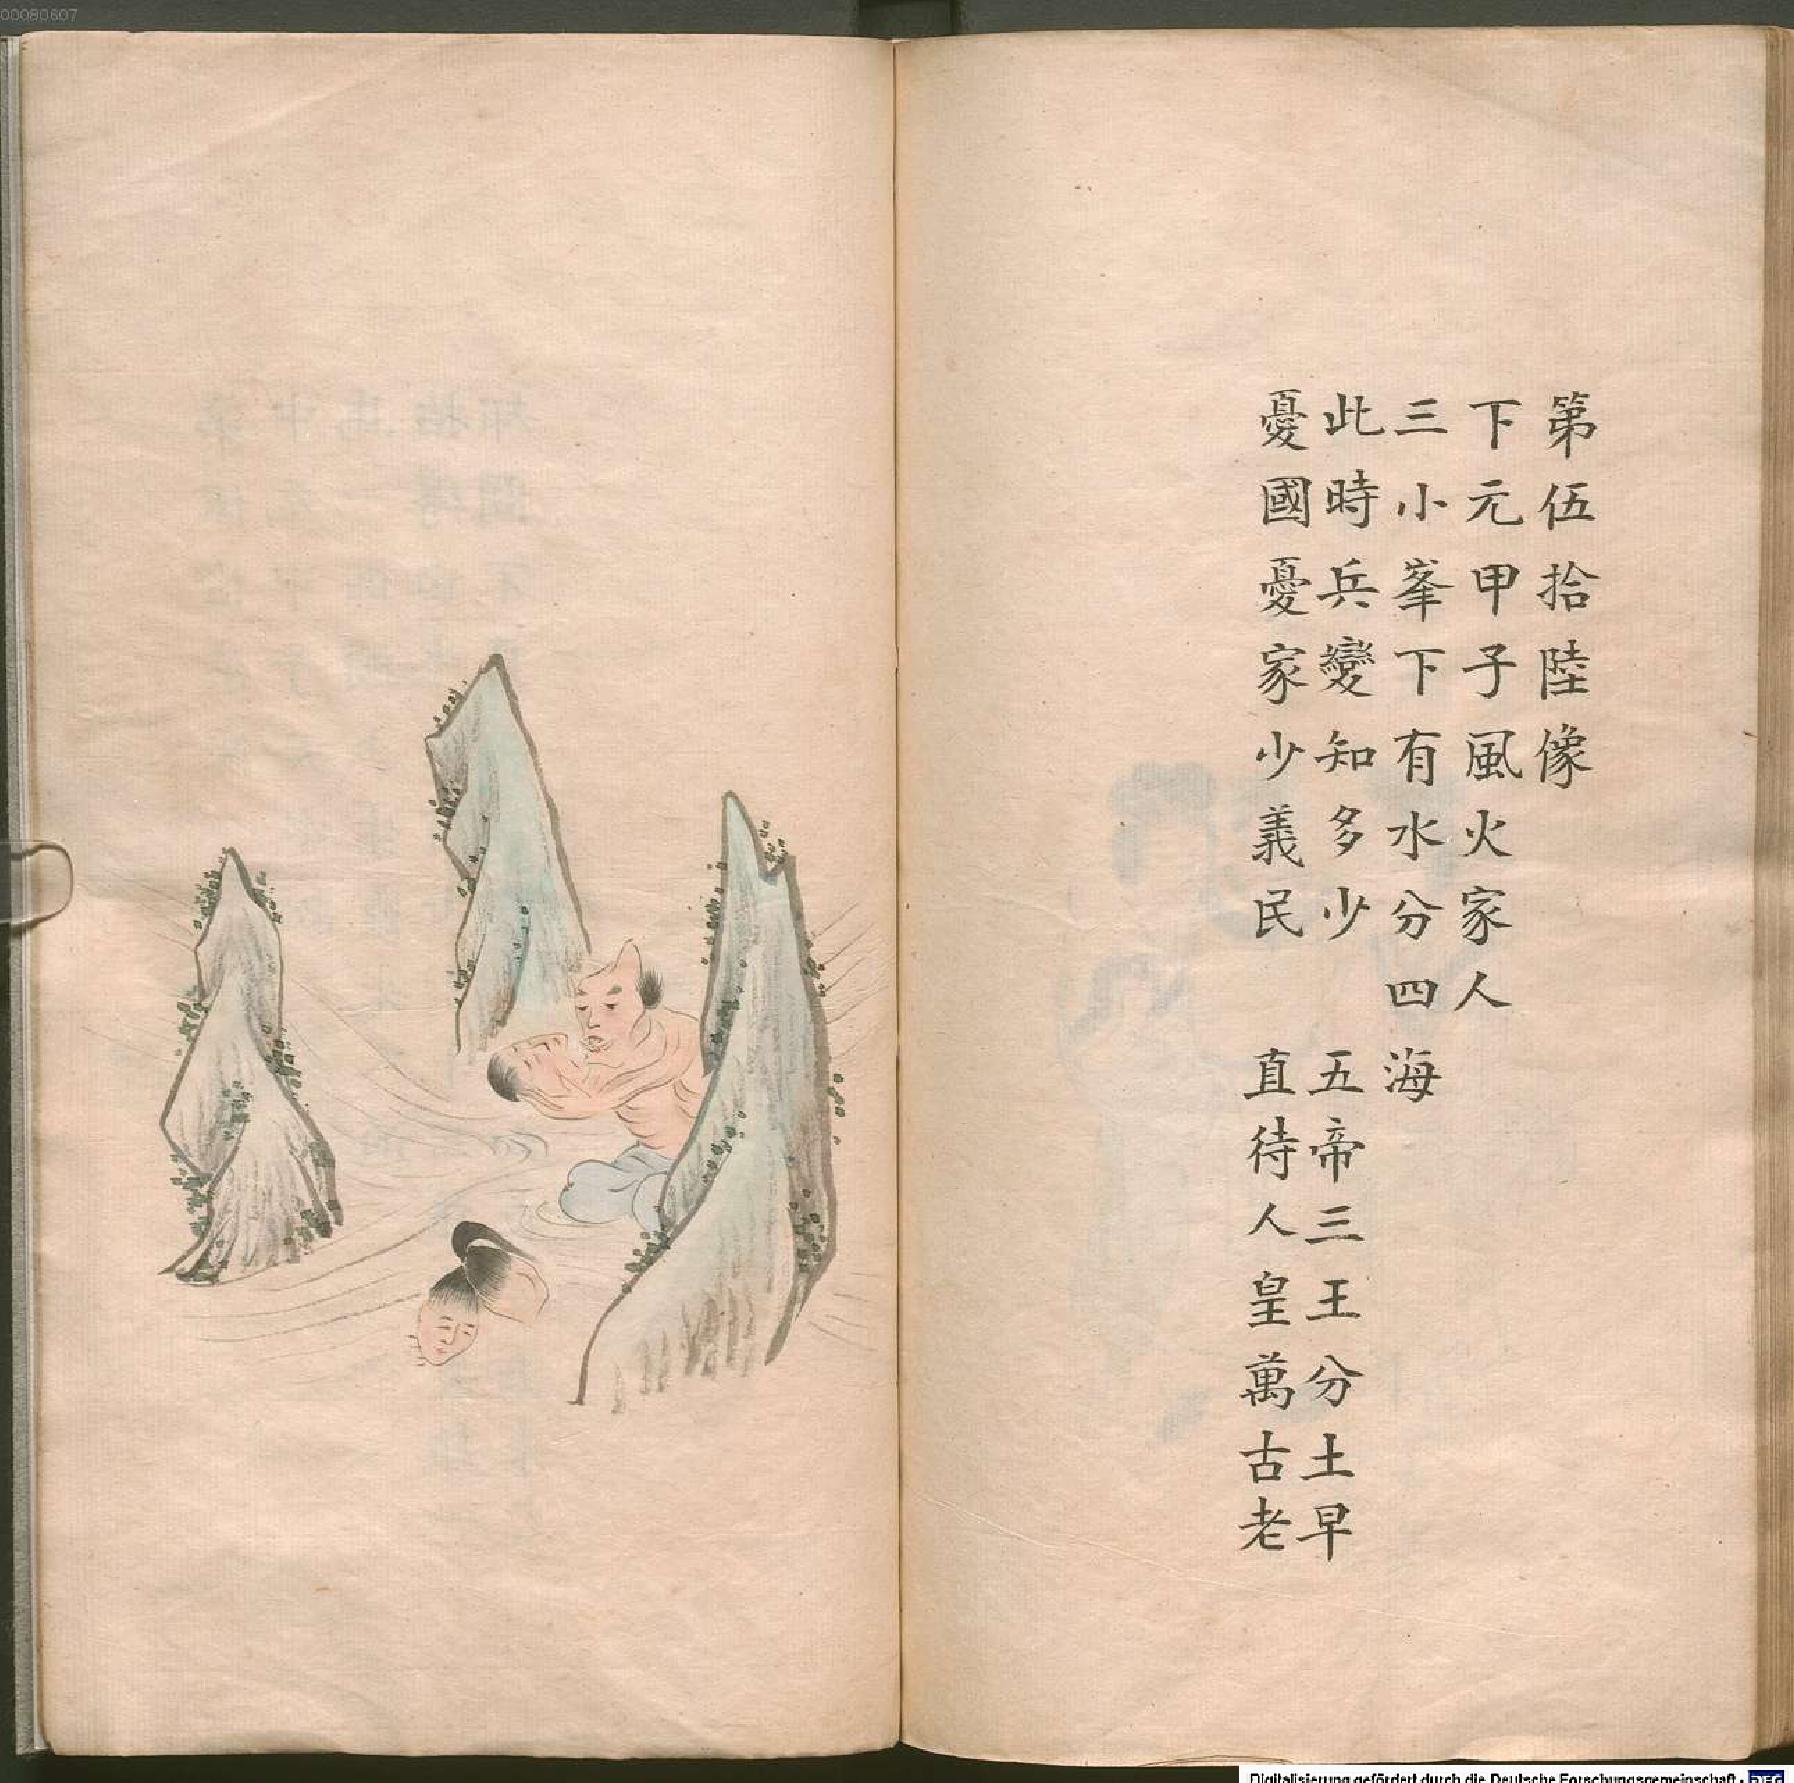 00080607
第伍拾陸像
下元甲子風火家人
三小峯下有水分四海
此時兵變知多少 五帝三王分土早
憂國憂家少義民 直待人皇萬古老
Digitalisierung gefördert durch die Deutsche Forschungsgemeinschaft - DFG